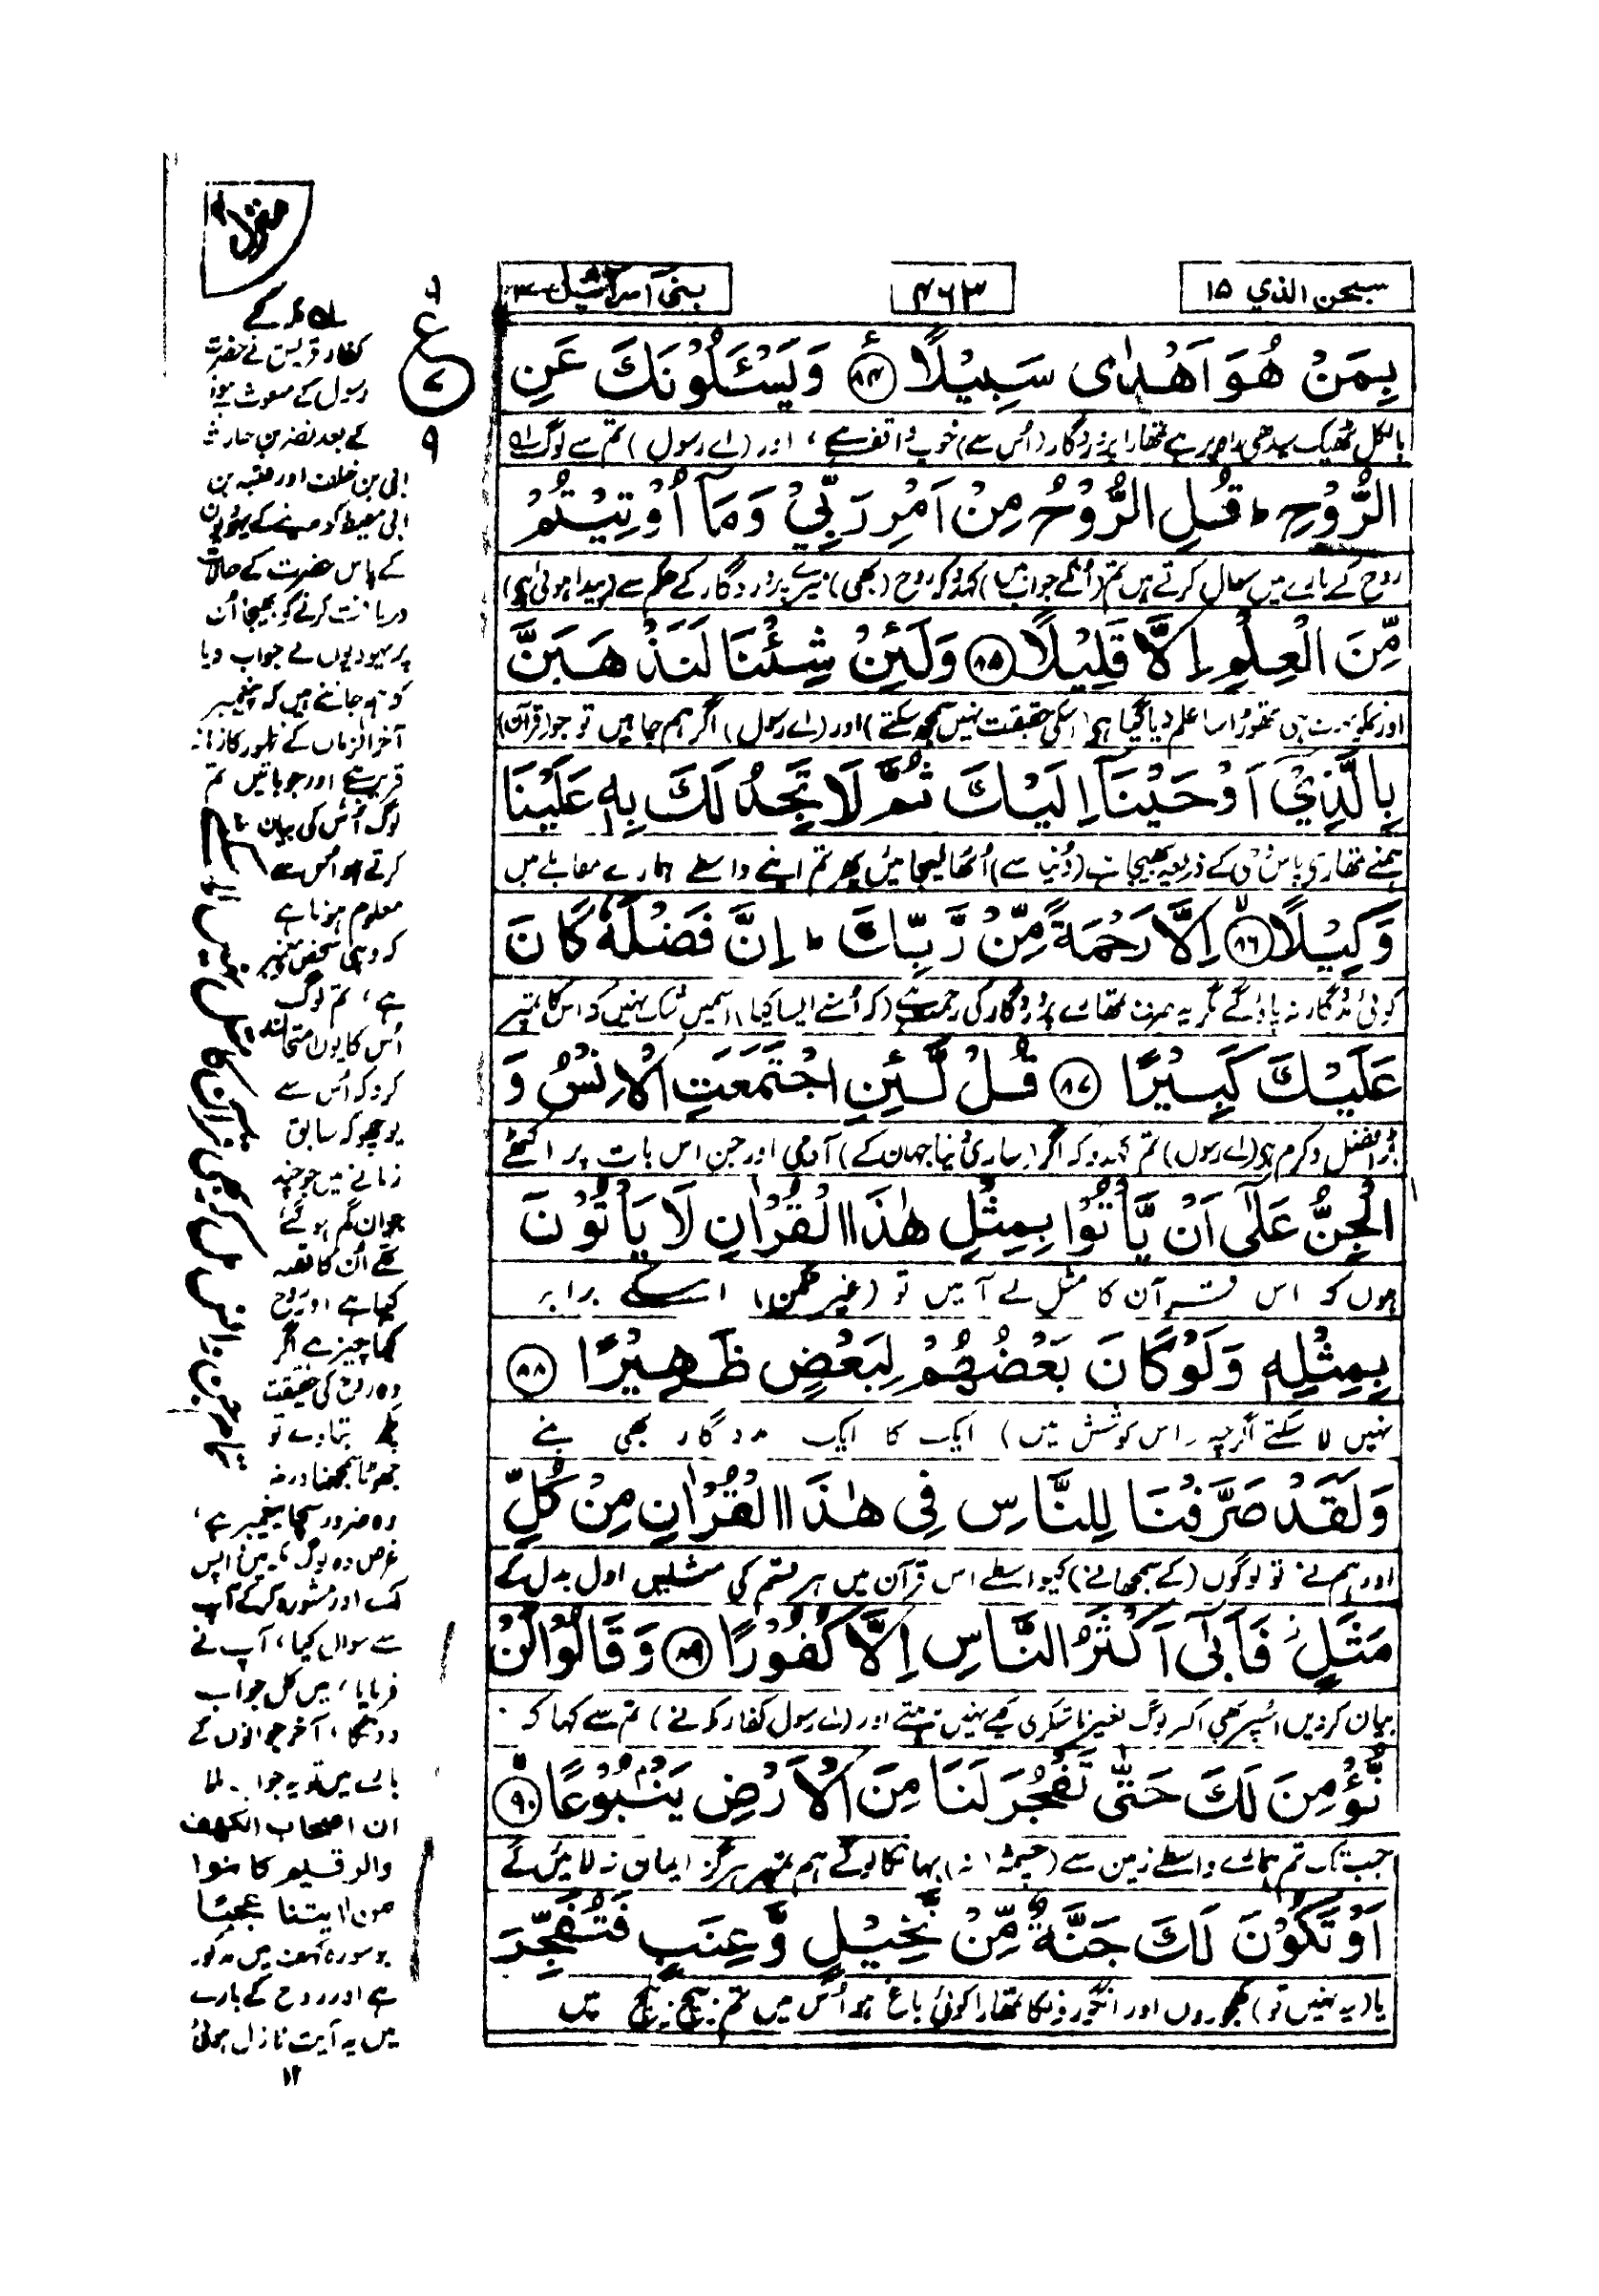 سبحن الذي ۱۵
۴۶۳
بنی اسرآئیل
بِمَنْ هُوَ اَهْدٰى سَبِيْلًا ﴿۸۴﴾ وَيَسْـَٔلُوْنَكَ عَنِ
بالکل ٹھیک سیدھی راہ پر ہے تمھارا پروردگار (اُس سے) خوب واقف ہے، اور (اے رسول) تم سے لوگ
الرُّوْحِ ؕ قُلِ الرُّوْحُ مِنْ اَمْرِ رَبِّيْ وَمَآ اُوْتِيْتُمْ
روح کے بارے میں سوال کرتے ہیں تم (اُنکے جواب میں) کہدو کہ روح (بھی) میرے پروردگار کے حکم سے (پیدا ہوئی ہے)
مِّنَ الْعِلْمِ اِلَّا قَلِيْلًا ﴿۸۵﴾ وَلَئِنْ شِئْنَا لَنَذْهَبَنَّ
اور تمکو بہت ہی تھوڑا سا علم دیا گیا ہے (اسکی حقیقت نہیں سمجھ سکتے) اور (اے رسول) اگر ہم چاہیں تو جو (قرآن)
بِالَّذِيْٓ اَوْحَيْنَآ اِلَيْكَ ثُمَّ لَا تَجِدُ لَكَ بِهٖ عَلَيْنَا
ہمنے تمھارے پاس وحی کے ذریعہ بھیجا ہے (دُنیا سے) اُٹھا لیجائیں پھر تم اپنے واسطے ہمارے مقابلے میں
وَكِيْلًا ﴿۸۶﴾ اِلَّا رَحْمَةً مِّنْ رَّبِّكَ ؕ اِنَّ فَضْلَهٗ كَانَ
کوئی مددگار نہ پاؤ گے مگر یہ صرف تمھارے پروردگار کی رحمت ہے (کہ اُسنے ایسا کیا) اسمیں شک نہیں کہ اس کا تمپر
عَلَيْكَ كَبِيْرًا ﴿۸۷﴾ قُلْ لَّئِنِ اجْتَمَعَتِ الْاِنْسُ وَ
بڑا فضل و کرم ہے (اے رسول) تم کہدو کہ اگر (ساری دُنیا جہان کے) آدمی اور جن اس بات پر اکٹھے
الْجِنُّ عَلٰٓى اَنْ يَّاْتُوْا بِمِثْلِ هٰذَا الْقُرْاٰنِ لَا يَاْتُوْنَ
ہوں کہ اس قرآن کا مثل لے آئیں تو (غیر ممکن) اسکے برابر
بِمِثْلِهٖ وَلَوْ كَانَ بَعْضُهُمْ لِبَعْضٍ ظَهِيْرًا ﴿۸۸﴾
نہیں لا سکتے اگرچہ (اس کوشش میں) ایک کا ایک مددگار بھی بنے
وَلَقَدْ صَرَّفْنَا لِلنَّاسِ فِيْ هٰذَا الْقُرْاٰنِ مِنْ كُلِّ
اور ہم نے تو لوگوں (کے سمجھانے) کیواسطے اس قرآن میں ہر قسم کی مثلیں ادل بدل کے
مَثَلٍ ؗ فَاَبٰٓى اَكْثَرُ النَّاسِ اِلَّا كُفُوْرًا ﴿۸۹﴾ وَقَالُوْا لَنْ
بیان کردیں اسپر بھی اکثر لوگ بغیر ناشکری کیے نہیں رہتے اور (اے رسول کفار مکہ نے) تم سے کہا کہ
نُّؤْمِنَ لَكَ حَتّٰى تَفْجُرَ لَنَا مِنَ الْاَرْضِ يَنْۢبُوْعًا ﴿۹۰﴾
جب تک تم ہمارے واسطے زمین سے (چشمہ نہ) بہا نکالوگے ہم تمپر ہرگز ایمان نہ لائیں گے
اَوْ تَكُوْنَ لَكَ جَنَّةٌ مِّنْ نَّخِيْلٍ وَّعِنَبٍ فَتُفَجِّرَ
یا (یہ نہیں تو) کھجوروں اور انگوروں کا تمھارا کوئی باغ ہو اُس میں تم بیچ بیچ میں
منزل ۴
ع
۹
کفار قریش نے حضرت
رسول کے مبعوث ہونے
کے بعد نضر بن حارث
ابی بن خلف اور عقبہ بن
ابی معیط کو مدینے کے یہودیوں
کے پاس حضرت کے حالات
دریافت کرنے کو بھیجا اُن
پر یہودیوں نے جواب دیا
کہ ہم جانتے ہیں کہ پیغمبر
آخر الزماں کے ظہور کا زمانہ
قریب ہے اور جو باتیں تم
لوگ اُس کی بیان
کرتے ہو اُس سے
معلوم ہوتا ہے
کہ وہی شخص پیغمبر
ہے، تم لوگ
اُس کا یوں امتحان
کرو کہ اُس سے
پوچھو کہ سابق
زمانے میں جو چند
جوان گم ہو گئے
تھے اُن کا قصہ
کیا ہے اور روح
کیا چیز ہے اگر
وہ روح کی حقیقت
بتا دے تو
جھوٹا سمجھنا ورنہ
وہ ضرور سچا پیغمبر ہے،
غرض وہ لوگ
اور مشورہ کرکے آپ
سے سوال کیا، آپ نے
فرمایا، میں کل جواب
دونگا، آخر جوانوں کے
باب میں تو یہ جواب ملا
ان اصحاب الکهف
والرقیم کانوا
من اٰیٰتنا عجبًا
جو سورۂ کہف میں مذکور
ہے اور روح کے بارے
میں یہ آیت نازل ہوئی
۱۲